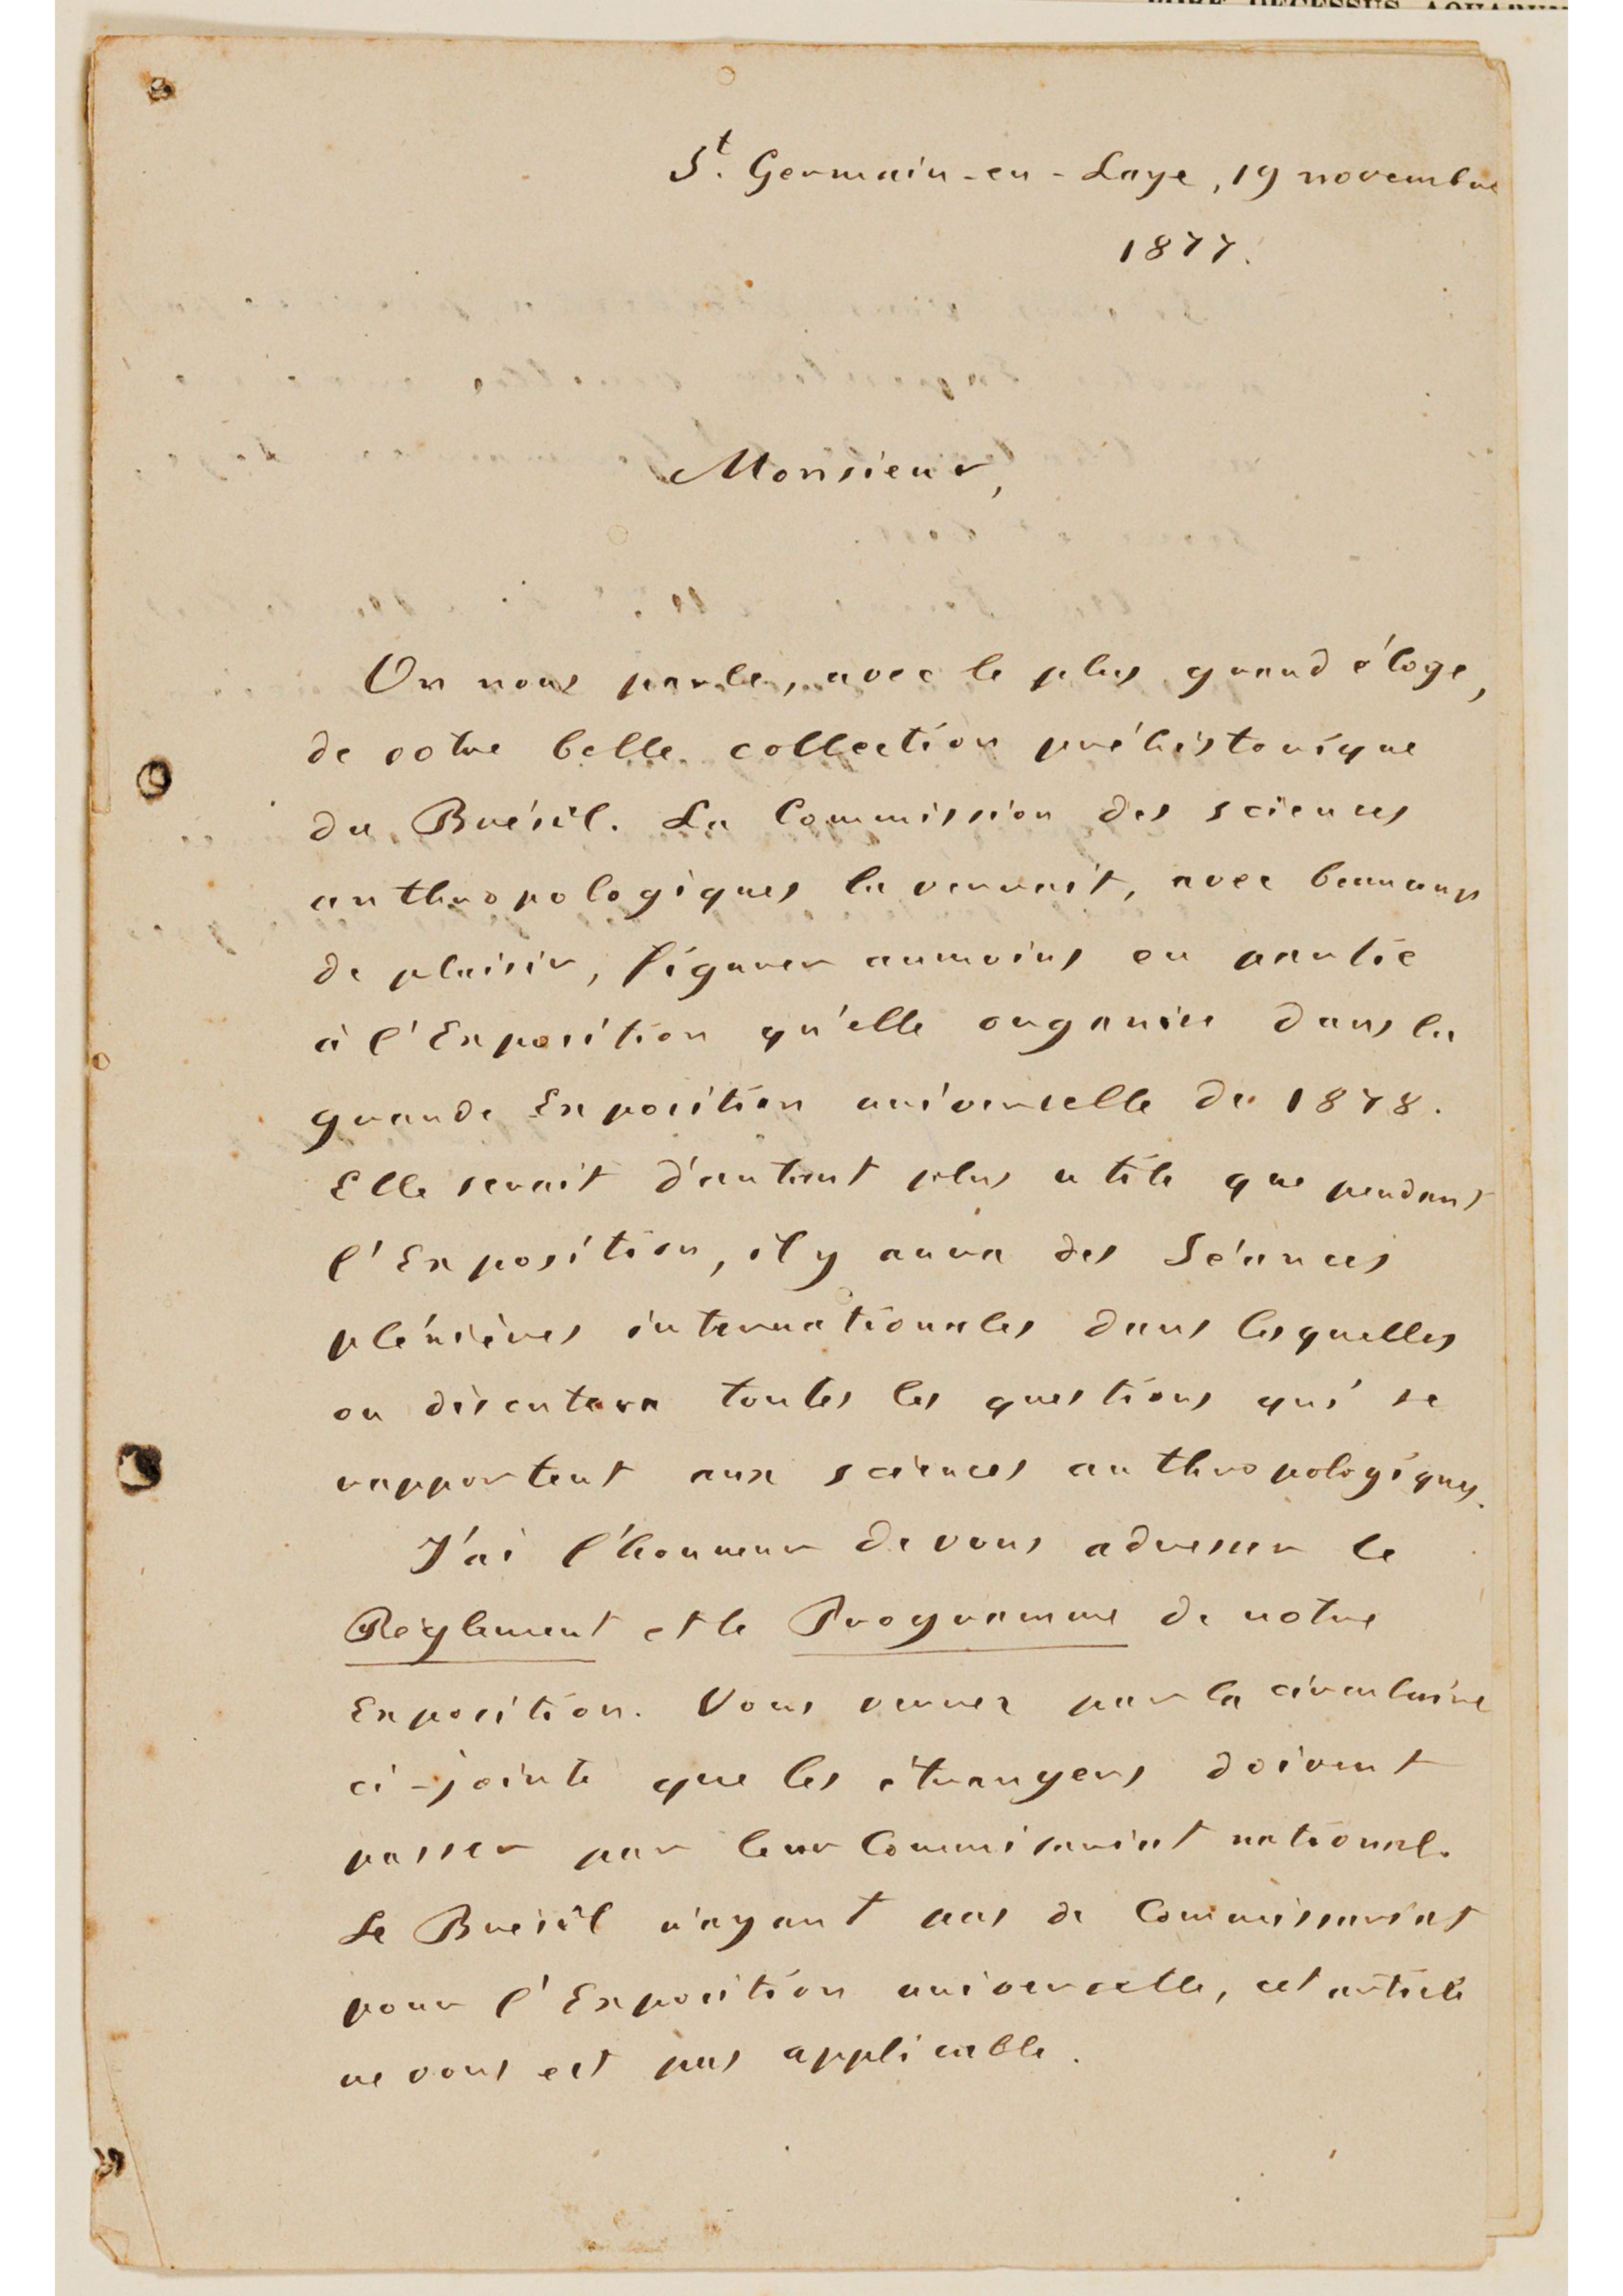 St. Germain-en-Laye, 19 novembre
1877.
Monsieur,
On nous parle, avec le plus grand éloge,
de votre belle collection préhistorique
du Brésil. La Commission des sciences
anthropologiques la verrait, avec beaucoup
de plaisir, figurer aumoins en partie
à l'Exposition qu'elle organise dans la
grande Exposition universelle de 1878.
Elle serait d'autant plus utile que pendant
l'Exposition, il y aura des Séances
plénières internationales dans lesquelles
on discutera toutes les questions qui se
rapportent aux sciences anthropologiques.
J'ai l'honneur de vous adresser le
Règlement et le Programme de notre
Exposition. Vous verrez par la circulaire
ci-jointe que les étrangers doivent
passer par leur Commissariat national.
Le Brésil n'ayant pas de Commissariat
pour l'Exposition universelle, cet article
ne vous est pas applicable.